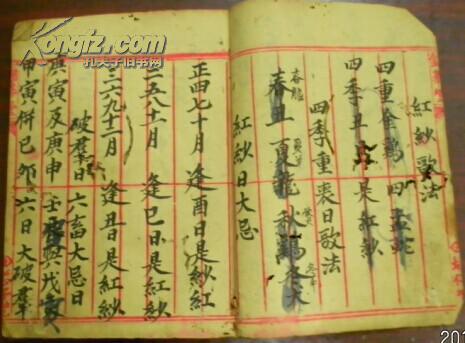 紅紗歌法
四重金鷄四孟蛇
四季丑日是紅紗
四季重喪日歌法
春丑 夏龍 秋 冬犬
紅紗日大忌
正四七十月 逢酉日是紗紅
二五八十一月 逢巳日是紅紗
三六九十二月 逢丑日是紅紗
破羣日 六畜大忌日
庚寅及庚申 壬 與戊
甲寅併巳夘 六日大破羣
Kongfz.com
孔夫子旧书网
201